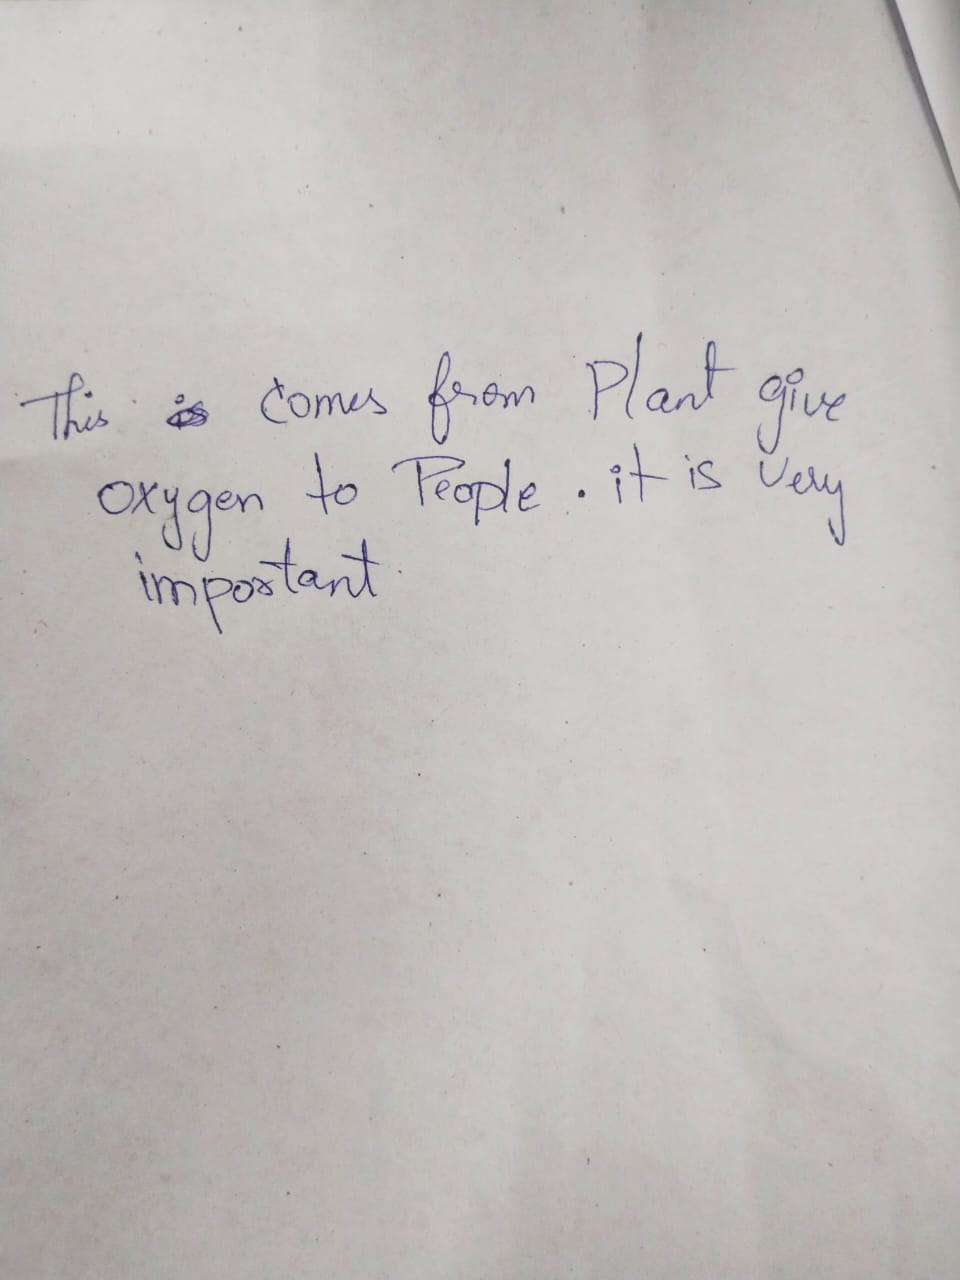 This is comes from Plant give
oxygen to People . it is very
important